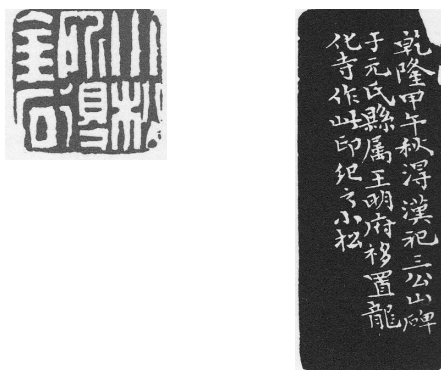 小松
所得
金石
乾隆甲午秋淂漢祀三公山碑
于元氏縣属王明府移置龍
化寺作此印纪之小松